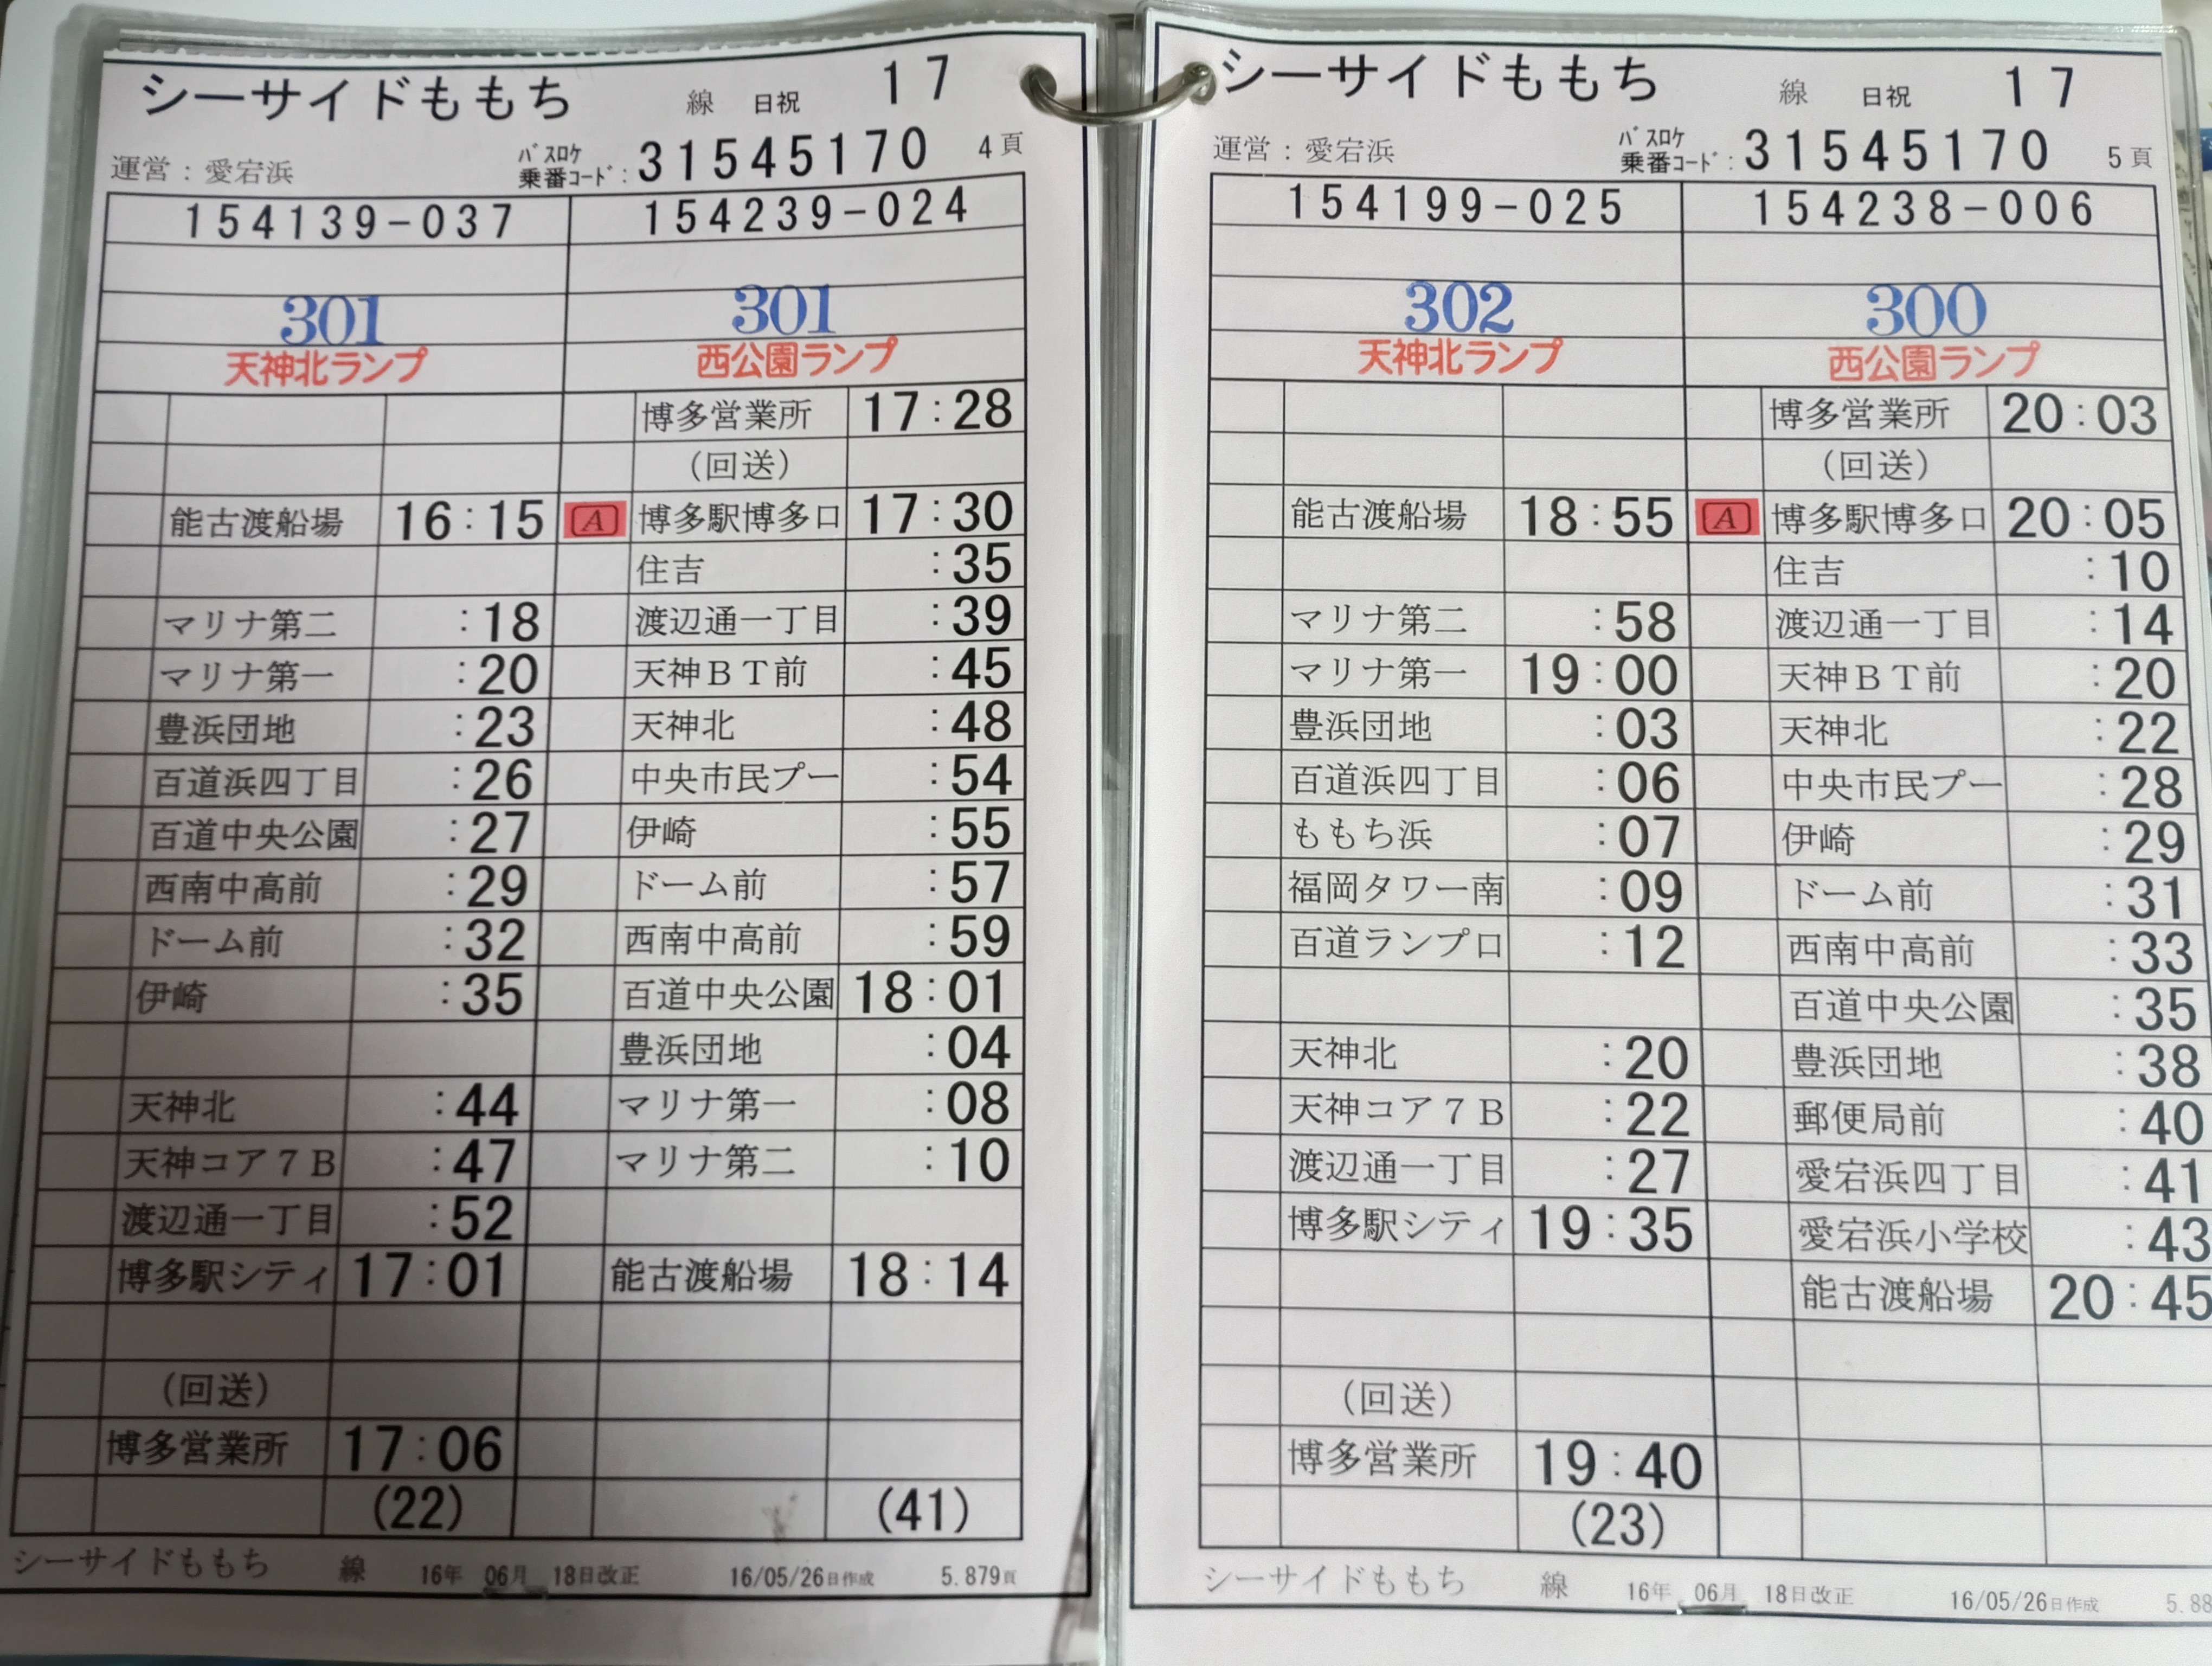 シーサイドももち 線 日祝 17
運営：愛宕浜 バスロケ 乗番コード：31545170 4頁
154139-037 154239-024
301 301
天神北ランプ 西公園ランプ
博多営業所 17:28
(回送)
能古渡船場 16:15 A 博多駅博多口 17:30
住吉 :35
マリナ第二 :18 渡辺通一丁目 :39
マリナ第一 :20 天神ＢＴ前 :45
豊浜団地 :23 天神北 :48
百道浜四丁目 :26 中央市民プー :54
百道中央公園 :27 伊崎 :55
西南中高前 :29 ドーム前 :57
ドーム前 :32 西南中高前 :59
伊崎 :35 百道中央公園 18:01
豊浜団地 :04
天神北 :44 マリナ第一 :08
天神コア７Ｂ :47 マリナ第二 :10
渡辺通一丁目 :52
博多駅シティ 17:01 能古渡船場 18:14
(回送)
博多営業所 17:06
(22) (41)
シーサイドももち 線 16年 06月 18日改正 16/05/26日作成 5.879頁
シーサイドももち 線 日祝 17
運営：愛宕浜 バスロケ 乗番コード：31545170 5頁
154199-025 154238-006
302 300
天神北ランプ 西公園ランプ
博多営業所 20:03
(回送)
能古渡船場 18:55 A 博多駅博多口 20:05
住吉 :10
マリナ第二 :58 渡辺通一丁目 :14
マリナ第一 19:00 天神ＢＴ前 :20
豊浜団地 :03 天神北 :22
百道浜四丁目 :06 中央市民プー :28
ももち浜 :07 伊崎 :29
福岡タワー南 :09 ドーム前 :31
百道ランプ口 :12 西南中高前 :33
百道中央公園 :35
天神北 :20 豊浜団地 :38
天神コア７Ｂ :22 郵便局前 :40
渡辺通一丁目 :27 愛宕浜四丁目 :41
博多駅シティ 19:35 愛宕浜小学校 :43
能古渡船場 20:45
(回送)
博多営業所 19:40
(23)
シーサイドももち 線 16年 06月 18日改正 16/05/26日作成 5.88